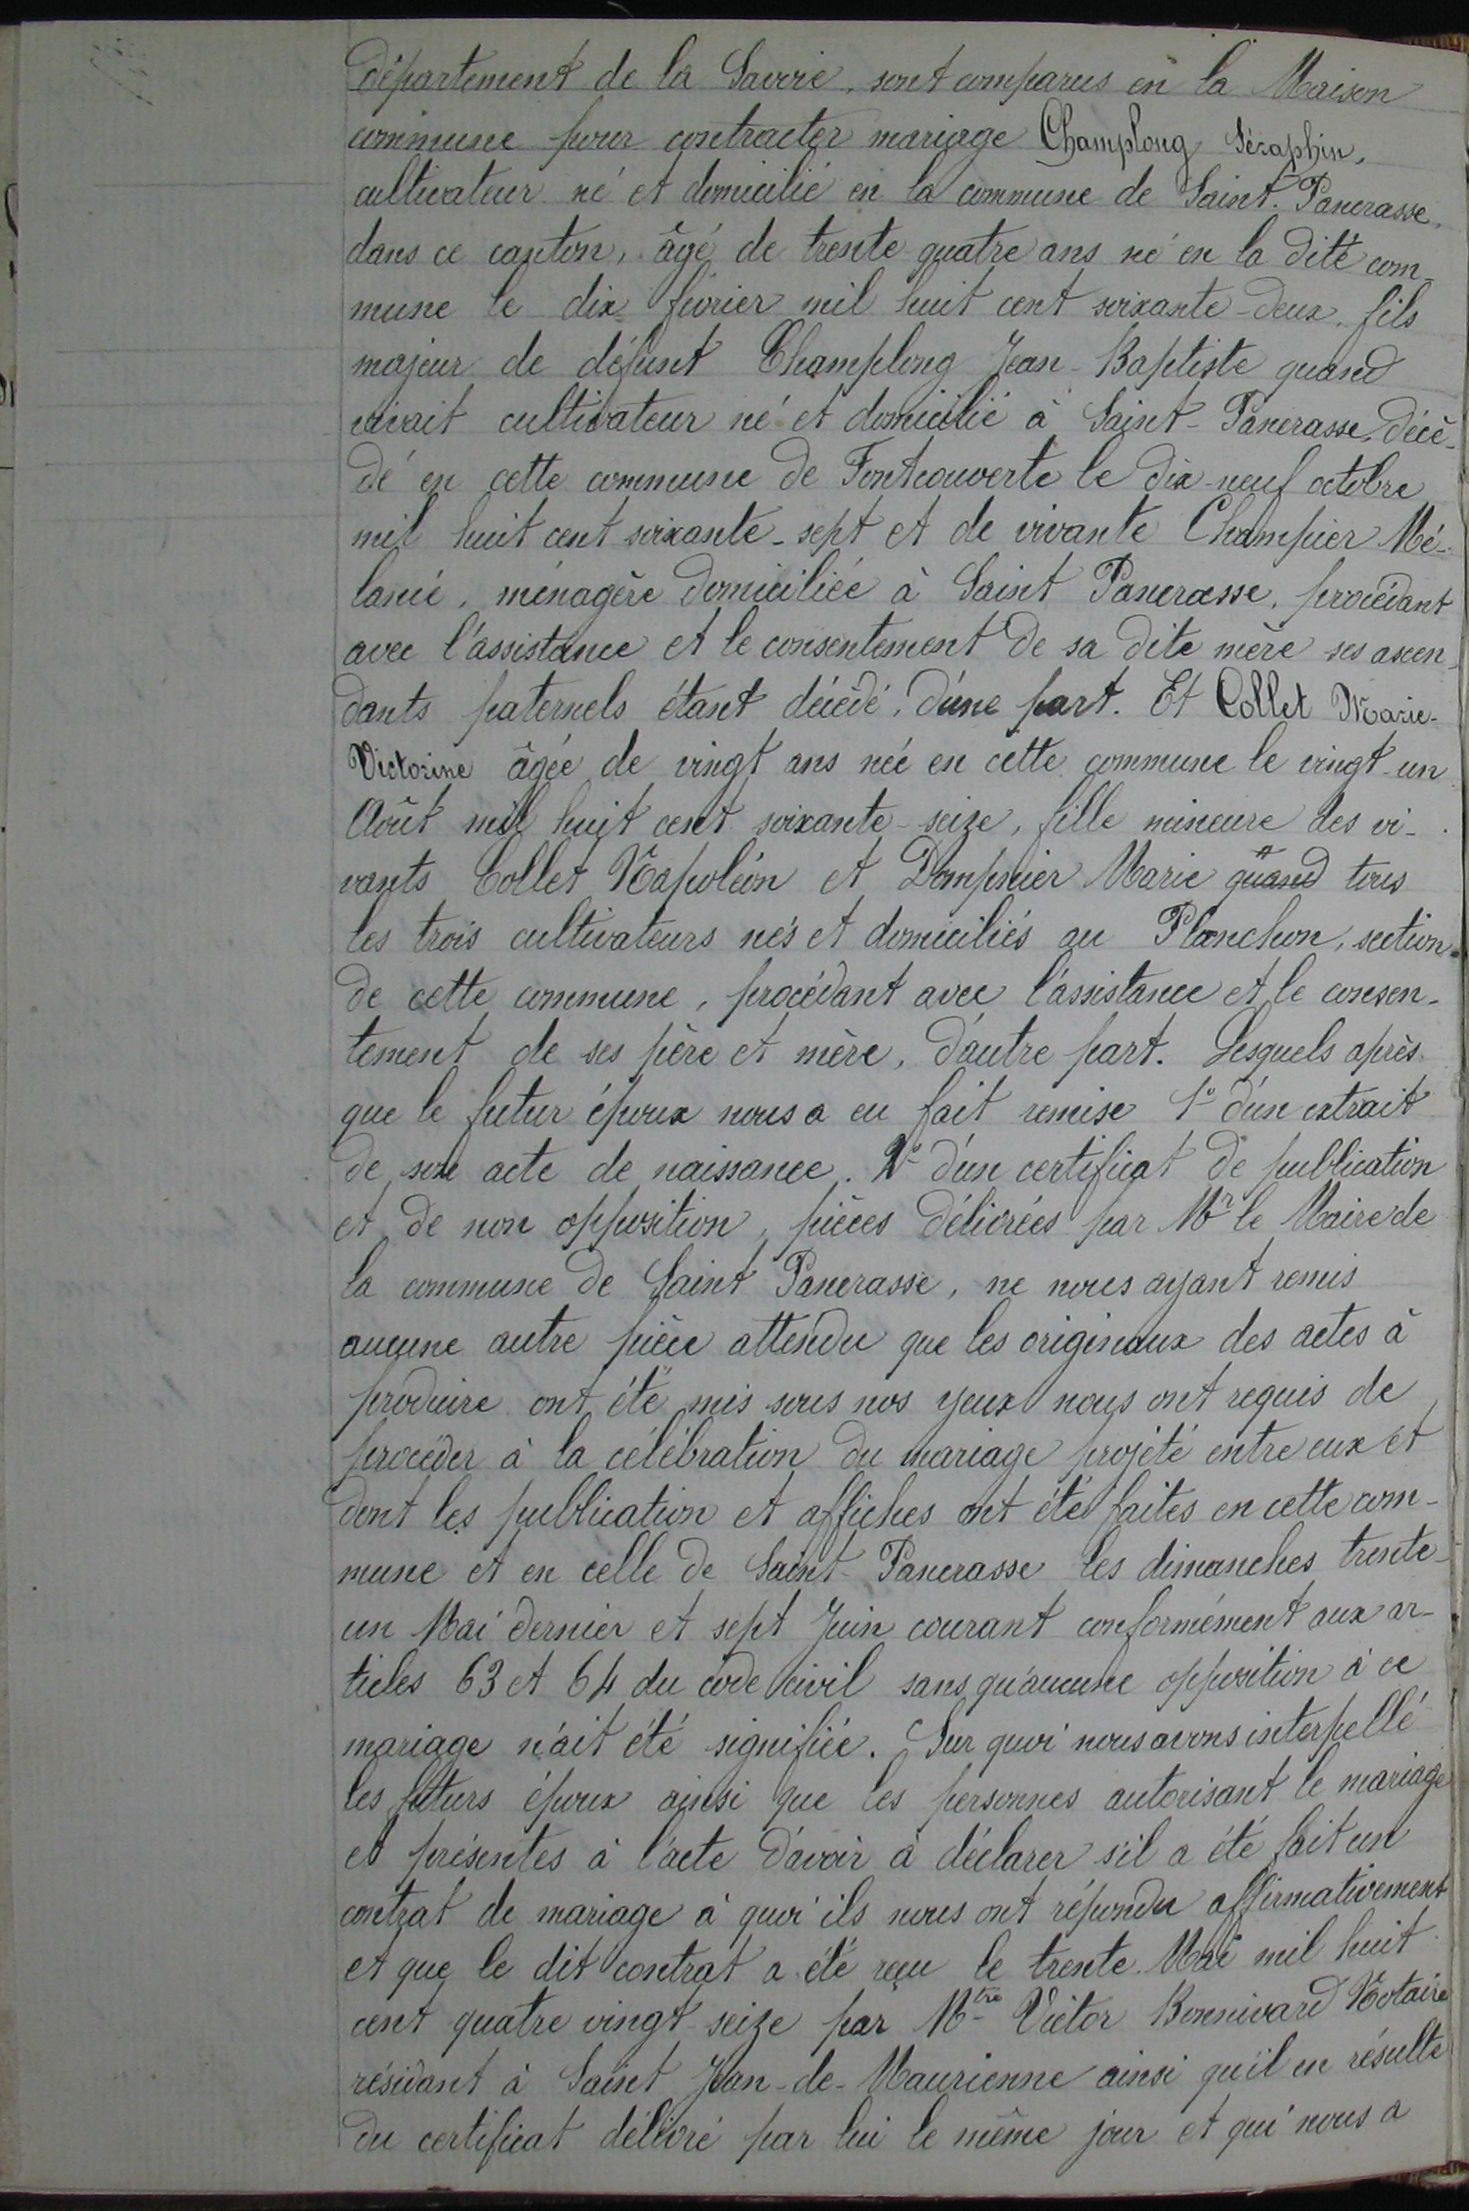 département de la Savoie, sont comparus en la Maison
commune pour contracter mariage Champlong Séraphin,
cultivateur né et domicilié en la commune de Saint-Pancrasse,
dans ce canton, âgé de trente quatre ans né en la dite com-
mune le dix février mil huit cent soixante-deux, fils
majeur de défunt Champlong Jean-Baptiste quand
vivait cultivateur né et domicilié à Saint-Pancrasse, décé-
dé en cette commune de Fontcouverte le dix-neuf octobre
mil huit cent soixante-sept et de vivante Champier Mé-
lanie, ménagère domiciliée à Saint Pancrasse, procédant
avec l'assistance et le consentement de sa dite mère ses ascen-
dants paternels étant décédé, d'une part. Et Collet Marie-
Victorine âgée de vingt ans née en cette commune le vingt-un
Août mil huit cent soixante-seize, fille mineure des vi-
vants Collet Napoléon et Dompnier Marie quand tous
les trois cultivateurs nés et domiciliés au Planchon, section
de cette commune, procédant avec l'assistance et le consen-
tement de ses père et mère, d'autre part. Lesquels après
que le futur époux nous a eu fait remise 1° d'un extrait
de son acte de naissance. 2° d'un certificat de publication
et de non opposition, pièces délivrées par Mr le Maire de
la commune de Saint Pancrasse, ne nous ayant remis
aucune autre pièce attendu que les originaux des actes à
produire ont été mis sous nos yeux nous ont requis de
procéder à la célébration du mariage projeté entre eux et
dont les publication et affiches ont été faites en cette com-
mune et en celle de Saint-Pancrasse les dimanches trente-
un Mai dernier et sept Juin courant conformément aux ar-
ticles 63 et 64 du code civil sans qu'aucune opposition à ce
mariage n'ait été signifiée. Sur quoi nous avons interpellé
les futurs époux ainsi que les personnes autorisant le mariage
et présentes à l'acte d'avoir à déclarer s'il a été fait un
contrat de mariage à quoi ils nous ont répondu affirmativement
et que le dit contrat a été reçu le trente Mai mil huit
cent quatre vingt-seize par Mtre Victor Bonnivard Notaire
résidant à Saint Jean-de-Maurienne ainsi qu'il en résulte
du certificat délivré par lui le même jour et qui nous a